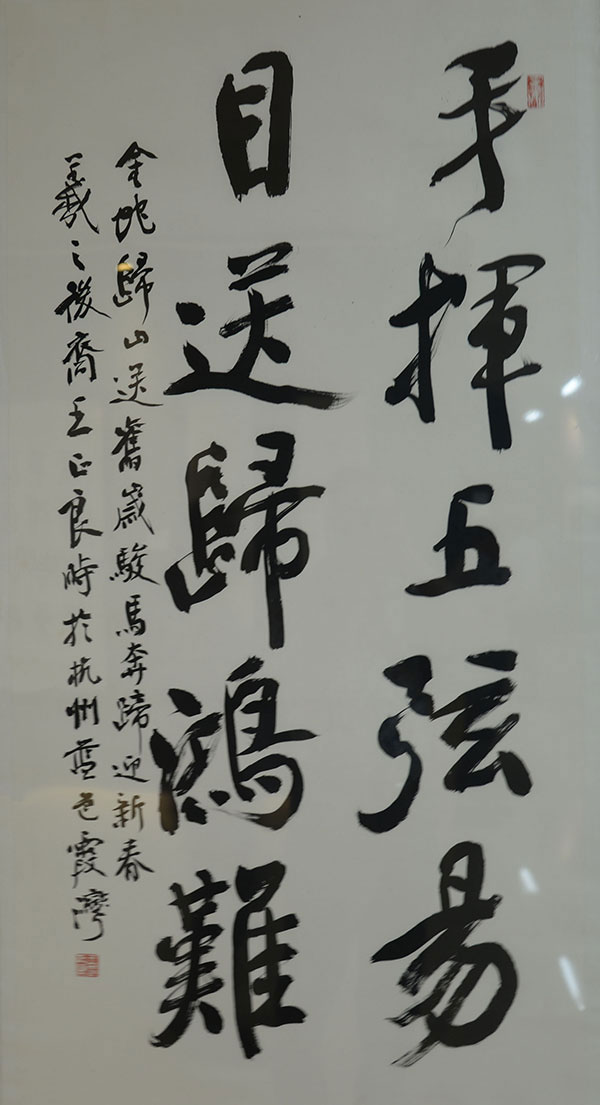 手揮五弦易
目送歸鴻難
金蛇歸山送舊歲駿馬奔蹄迎新春
王羲之後裔王正良時於杭州蓝色霞灣